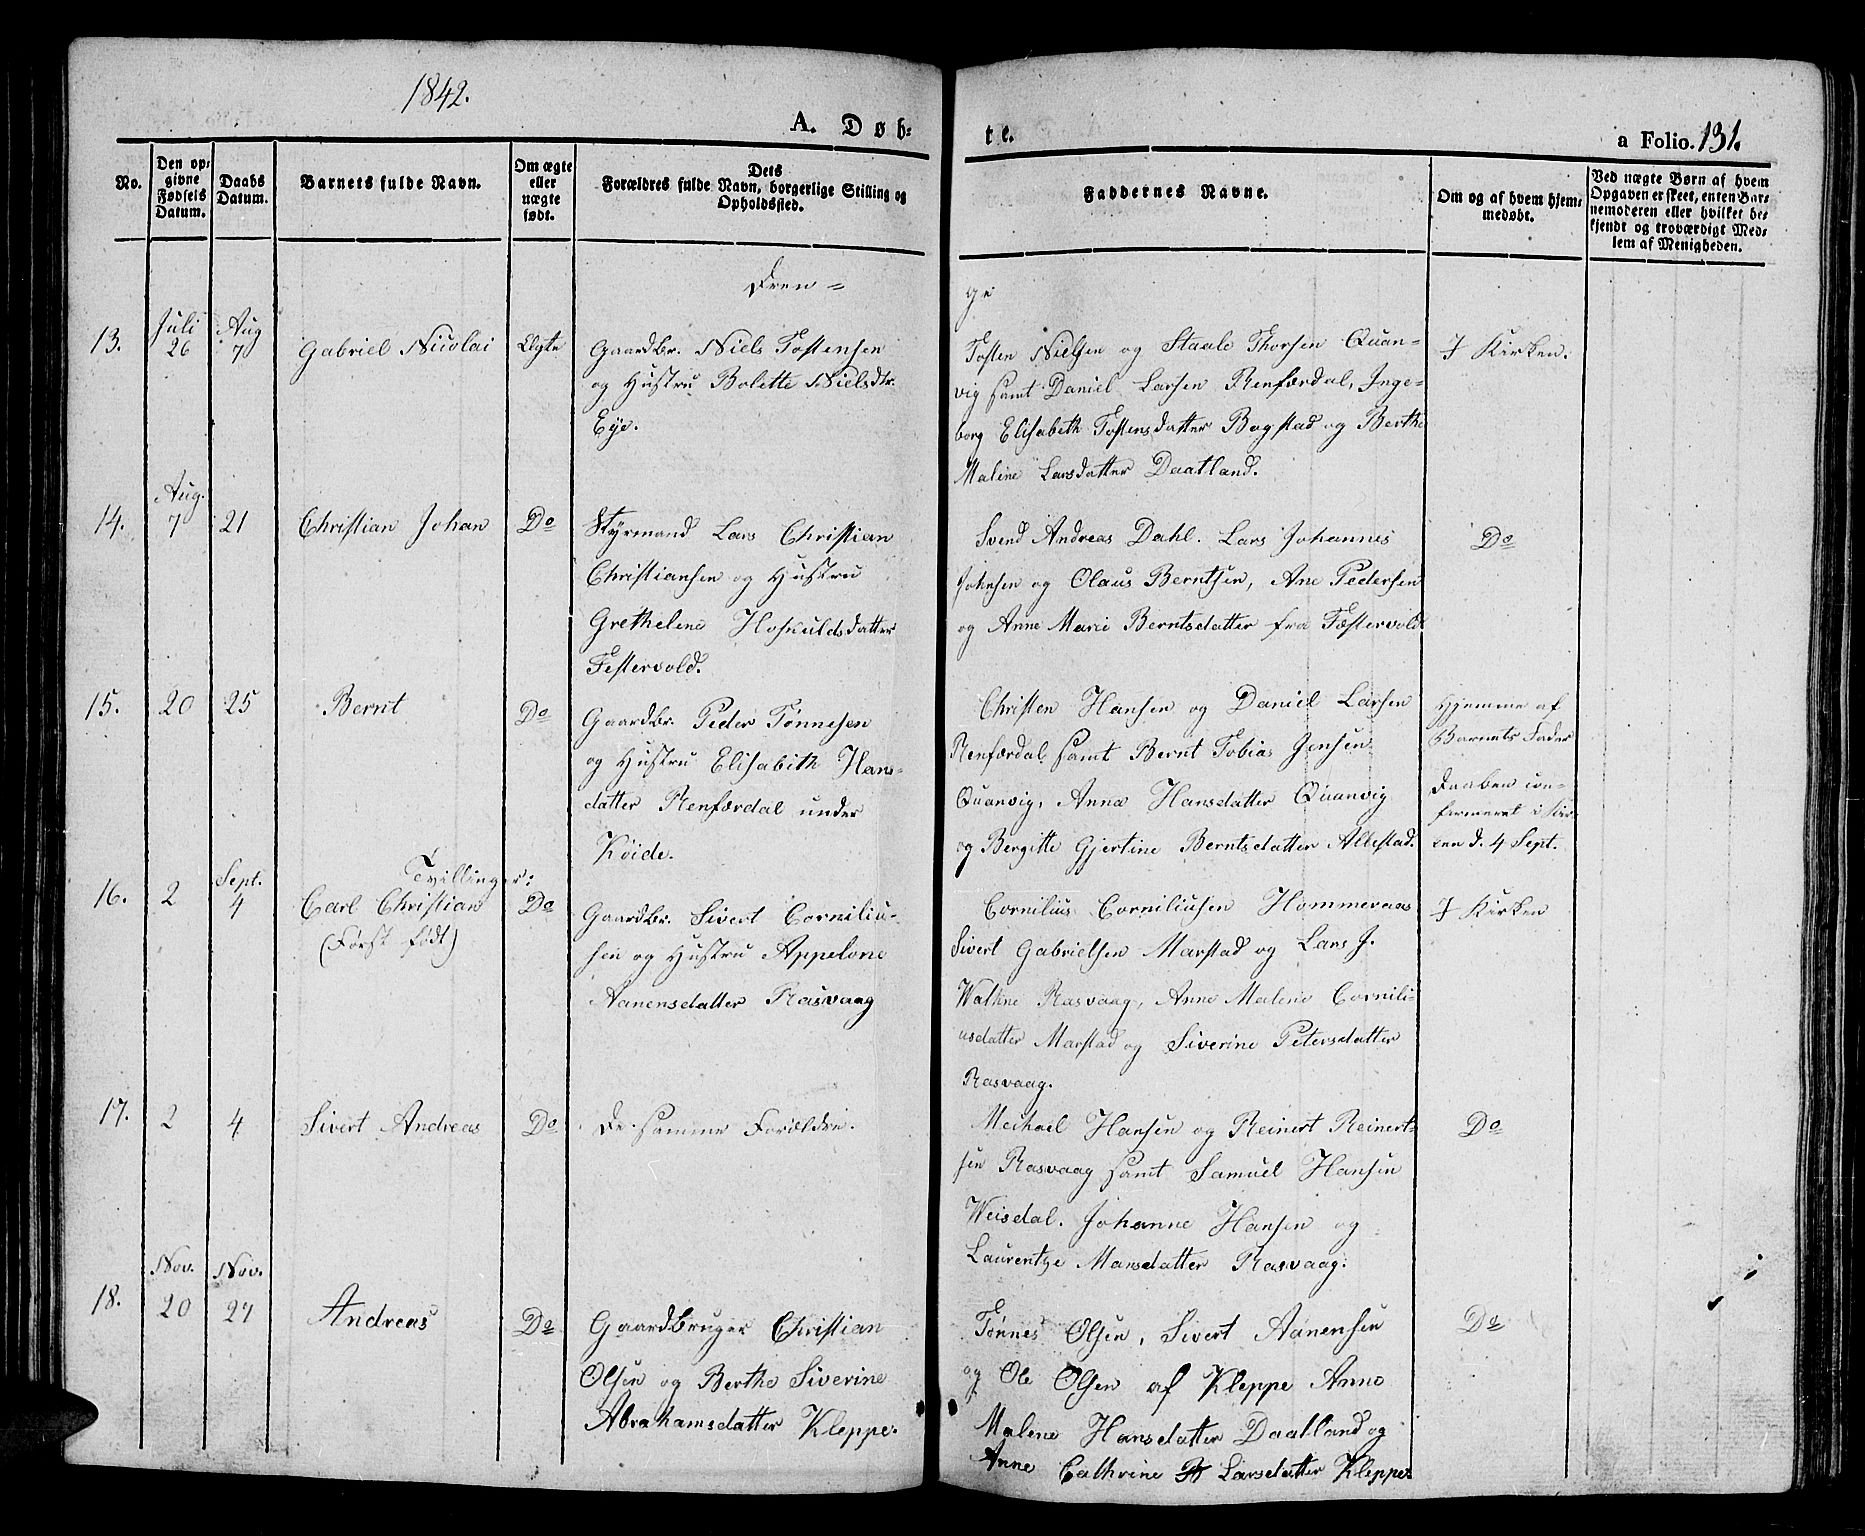 1842.
A. Døb-
te.
a Folio. 131.
No.
Den op-
givne
Fødsels
Datum.
Daabs
Datum.
Barnets fulde Navn.
Om ægte
eller
uægte
født.
Dets
Forældres fulde Navn, borgerlige Stilling og
Opholdssted.
Faddernes Navne.
Om og af hvem hjem-
medøbt.
Ved uægte Børn af hvem
Opgaven er skeet, enten Bar-
nemoderen eller hvilket be-
kjendt og troværdigt Med-
lem af Menigheden.
Dren-
ge
13.
Juli
26
Aug
7
Gabriel Nicolai
Ægte
Gaardbr. Niels Tostensen
og Hustru Bolette Nielsdtr.
Eye.
Tosten Nielsen og Staale Thorsen Quan-
vig samt Daniel Larsen Renfærdal, Inge-
borg Elisabeth Tostensdatter Bogstad og Berthe
Maline Larsdatter Daatland.
I Kirken.
14.
Aug.
7
21
Christian Johan
Do
Styrmand Lars Christian
Christiansen og Hustru
Grethelene Hoskuldsdatter
Festervold.
Svend Andreas Dahl. Lars Johannes
Johnsen og Olaus Berntsen, Ane Pedersen
og Anne Marie Berntsdatter fra Festervold
Do
15.
20
25
Bernt
Do
Gaardbr. Peder Tønnesen
og Hustru Elisabeth Hans-
datter Renfærdal under
Køide.
Christen Hansen og Daniel Larsen
Renfærdal samt Bernt Tobias Jensen
Quanvig, Anna Hansdatter Quanvig
og Bergitte Gjertine Berntsdatter Allestad.
Hjemme af
Barnets Fader
Daaben con-
firmeret i Kir-
ken d. 4 Sept.
Tvillinger:
16.
2
Sept.
4
Carl Christian
(Først født)
Do
Gaardbr. Sivert Corniliu-
sen og Hustru Appelone
Aanensdatter Rasvaag
Cornilius Corniliusen Hommevaas
Sivert Gabrielsen Marstad og Lars J.
Wathne Rasvaag, Anne Malene Cornili-
usdatter Marstad og Siverine Petersdatter
Rasvaag.
I Kirken
17.
2
4
Sivert Andreas
Do
De samme Forældre.
Michael Hansen og Reinert Reinert-
sen Rasvaag samt Samuel Hansen
Weisdal. Johanne Hansen og
Laurentze Mansdatter Rasvaag.
Do
18.
Nov.
20
Nov.
27
Andreas
Do
Gaardbruger Christian
Olsen og Berthe Siverine
Abrahamsdatter Kleppe.
Tønnes Olsen, Sivert Aanensen
og Ole Olsen af Kleppe Anne
Malene Hansdatter Daatland og
Anne Cathrine Larsdatter Kleppe
Do